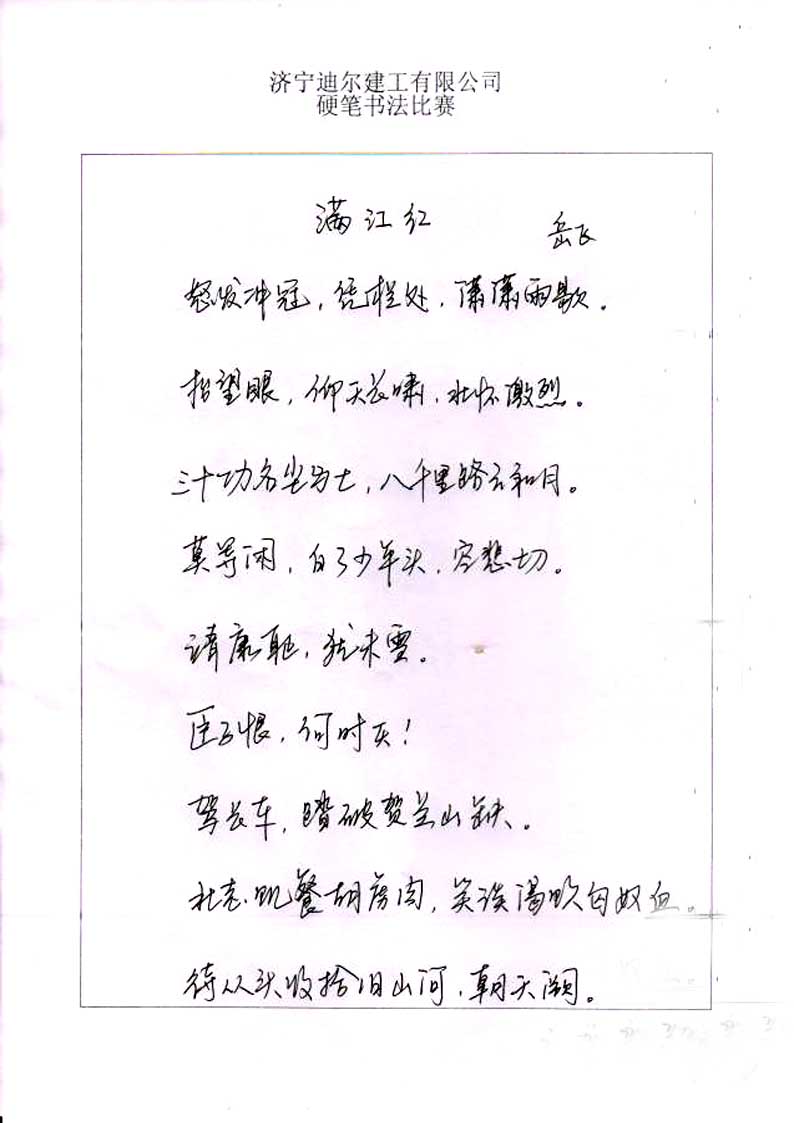 济宁迪尔建工有限公司
硬笔书法比赛
满江红
岳飞
怒发冲冠，凭栏处，潇潇雨歇。
抬望眼，仰天长啸，壮怀激烈。
三十功名尘与土，八千里路云和月。
莫等闲，白了少年头，空悲切。
靖康耻，犹未雪。
臣子恨，何时灭！
驾长车，踏破贺兰山缺。
壮志饥餐胡虏肉，笑谈渴饮匈奴血。
待从头收拾旧山河，朝天阙。